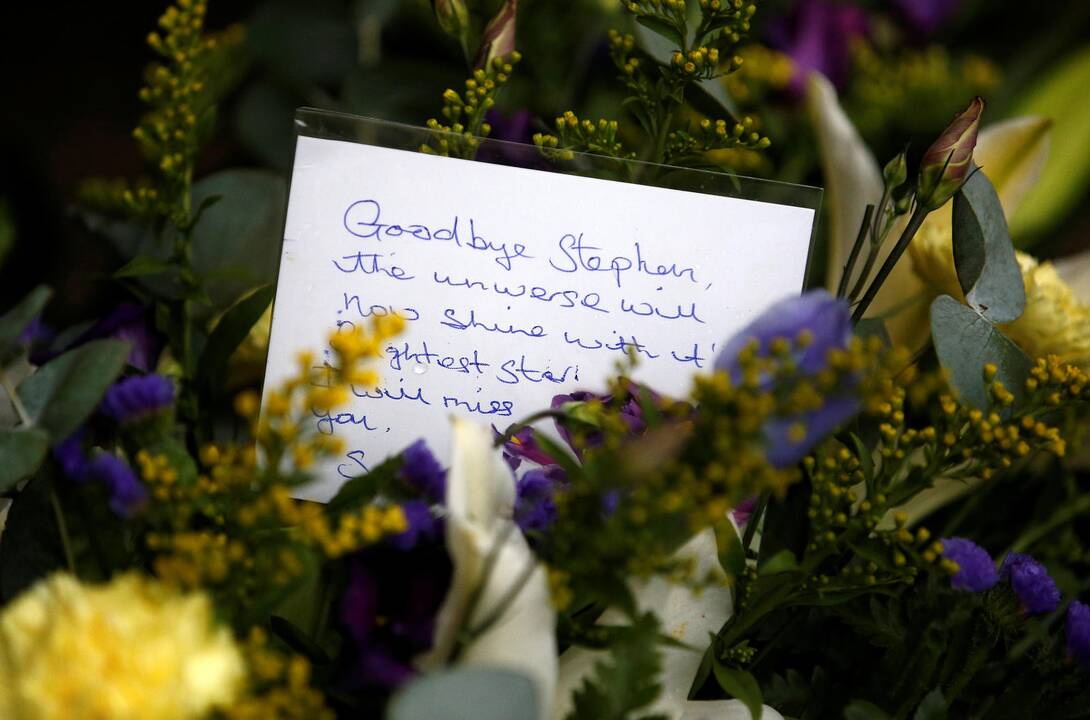 Goodbye Stephen,
the universe will
now shine with it'
ghtest star!
I will miss
you.
S